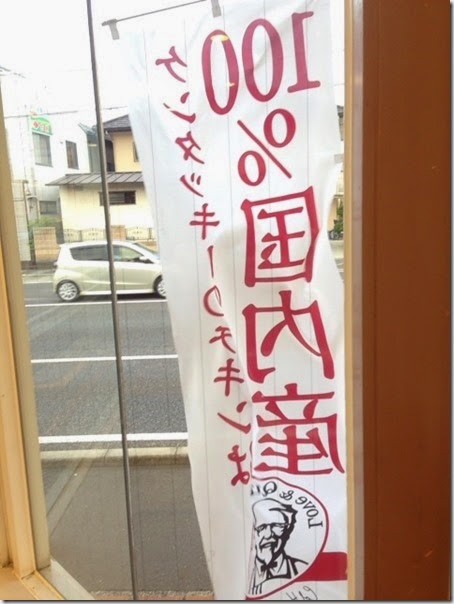 ケンタッキーのチキンは
100%国内産
Love &